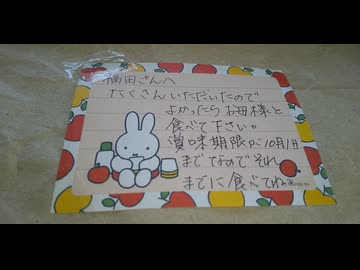 横田さんへ
たくさんいただいたので
よかったら お母様と
食べて下さい。
賞味期限が10月1日
までなので それ
までに食べてね